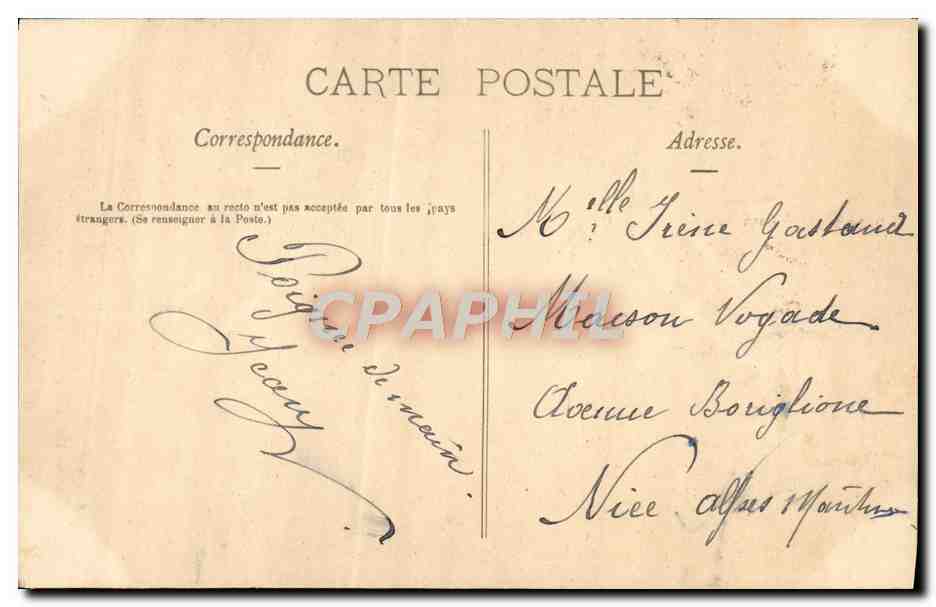 CARTE POSTALE
Correspondance.
Adresse.
La Correspondance au recto n'est pas acceptée par tous les pays
étrangers. (Se renseigner à la Poste.)
Poignée de main.
Jean
Melle Irène Gastaud
Maison Vogade
Avenue Boriglione
Nice Alpes Maritimes
CPAPHIL